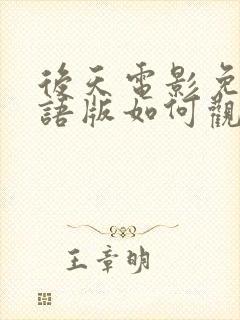 後天電影免
語版如何觀
王章明